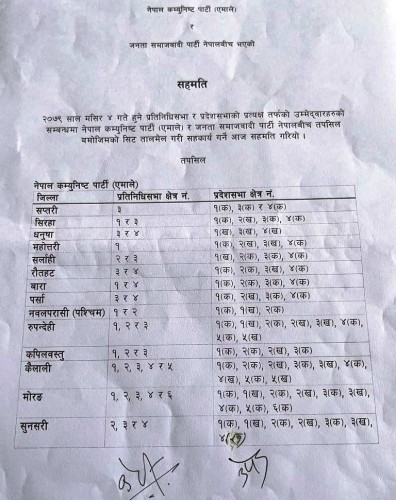 नेपाल कम्युनिष्ट पार्टी (एमाले)
र
जनता समाजवादी पार्टी नेपालबीच भएको
सहमति
२०७९ साल मंसिर ४ गते हुने प्रतिनिधिसभा र प्रदेशसभाको प्रत्यक्ष तर्फको उम्मेदवारहरुको
सम्बन्धमा नेपाल कम्युनिष्ट पार्टी (एमाले) र जनता समाजवादी पार्टी नेपालबीच तपसिल
बमोजिमको सिट तालमेल गरी सहकार्य गर्ने आज सहमति गरियो ।
तपसिल
नेपाल कम्युनिष्ट पार्टी (एमाले)
जिल्ला प्रतिनिधिसभा क्षेत्र नं. प्रदेशसभा क्षेत्र नं.
सप्तरी ३ १(क), ३(क) र ४(क)
सिरहा १ र ३ १(क), २(ख), ३(क), ४(क)
धनुषा ३ र ४ १(ख), ३(ख), ४(ख)
महोत्तरी १ १(क), २(ख), ३(ख), ४(क)
सर्लाही २ र ३ १(क), २(क), ३(क), ४(ख)
रौतहट ३ र ४ १(क), २(क), ३(ख), ४(क)
बारा १ र ४ १(क), २(क), ३(क), ४(ख)
पर्सा ३ र ४ १(क), २(ख), ३(क), ४(क)
नवलपरासी (परिचम) १ र २ १(क), १(ख), २(क)
रुपन्देही १, २ र ३ १(क), १(ख), २(क), २(ख), ३(ख), ४(क),
५(क), ५(ख)
कपिलवस्तु १, २ र ३ १(क), २(क), २(ख), ३(क)
कैलाली १, २, ३, ४ र ५ १(क), २(क), २(ख), ३(क), ३(ख), ४(क),
४(ख), ५(क), ५(ख)
मोरङ १, २, ३, ४ र ६ १(क), १(ख), २(क), २(ख), ३(क), ३(ख),
४(क), ५(क), ६(क)
सुनसरी २, ३ र ४ १(क), १(ख), २(क), २(ख), ३(क), ३(ख),